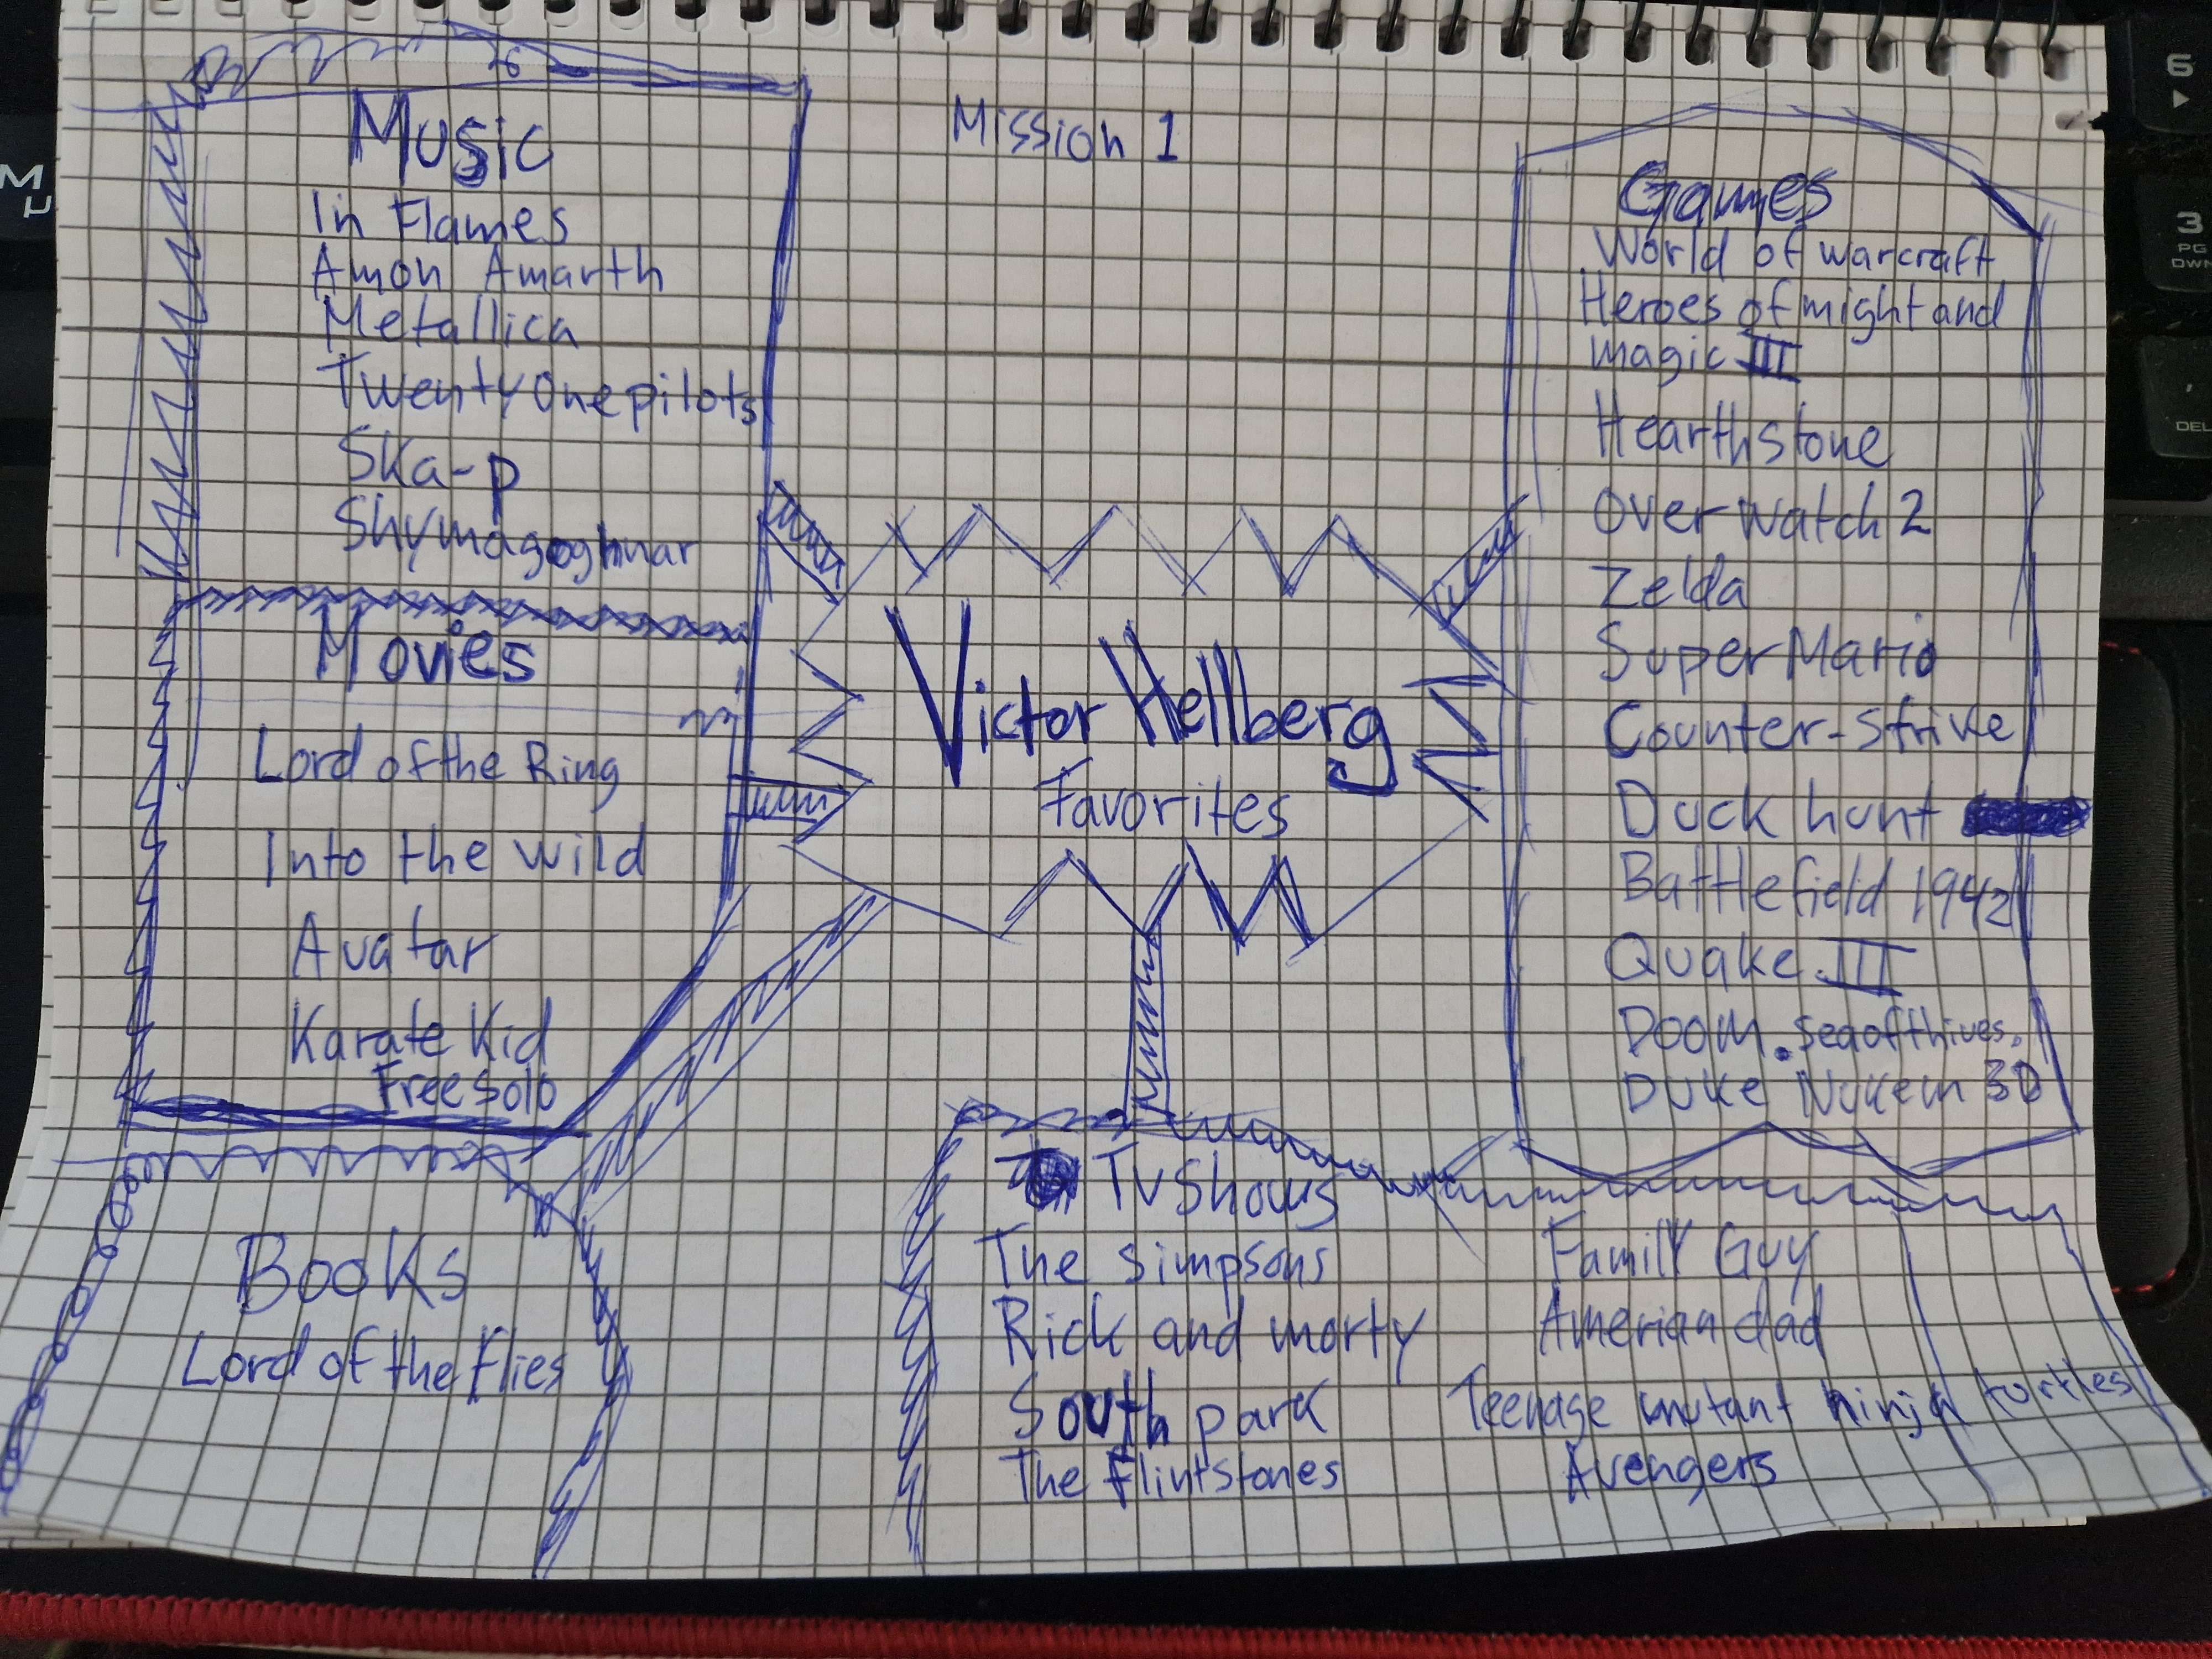 Mission 1
Music
In Flames
Amon Amarth
Metallica
Twenty one pilots
Ska-p
Movies
Lord of the Ring
Into the wild
Avatar
Karate Kid
Free solo
Books
Lord of the flies
Victor Hellberg
Favorites
Games
World of warcraft
Heroes of might and
magic III
Hearthstone
Overwatch 2
Zelda
Super Mario
Counter-Strike
Duck hunt
Battlefield 1942
Quake III
Doom. Sea of thives.
Duke Nukem 3D
TV Shows
The simpsons
Rick and morty
South park
The Flintstones
Family Guy
Amerian dad
Teenage mutant ninja turtles
Avengers
6
3
PG
DWN
,
DEL
M
μ